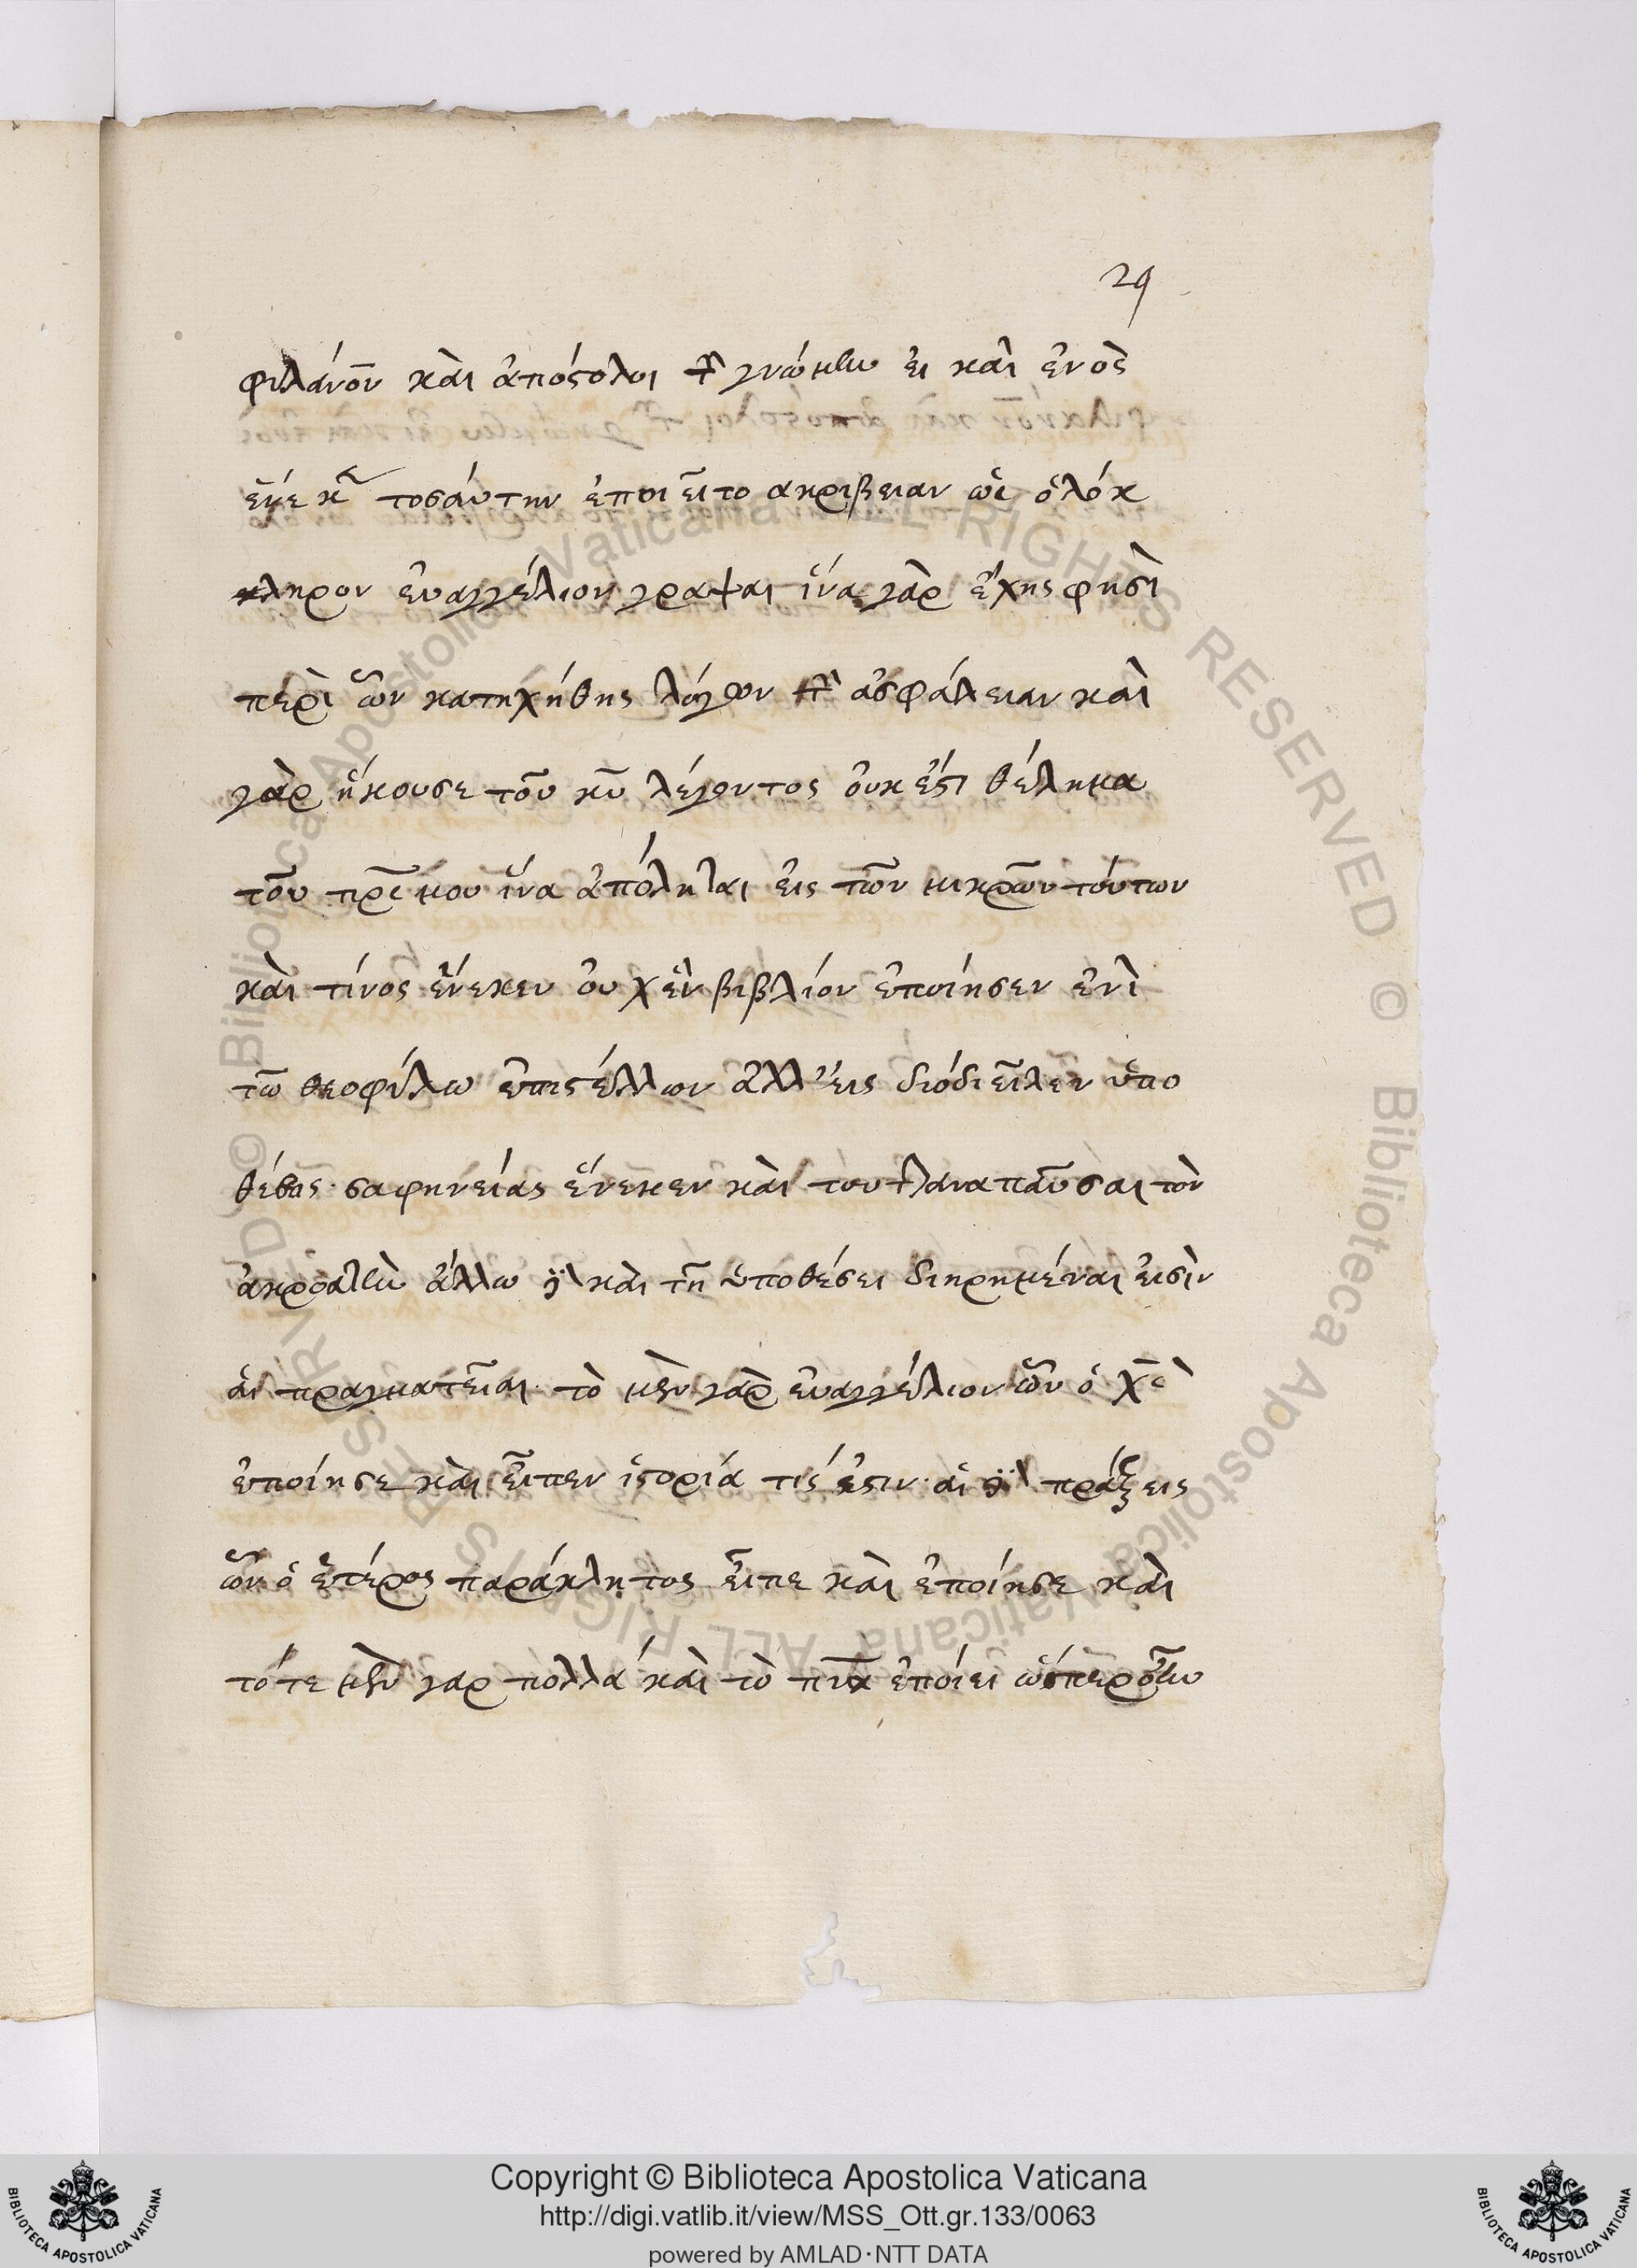 29
φιλάνον καὶ ἀπόστολοι τὴν γνώμην εἰ καὶ ἑνὸς
ἕνεκεν τοσάυτην ἐποιεῖτο ακριβειαν ὡς ὁλόκ
κληρον ἐυαγγέλιον γραψαι ἵνα γὰρ ἔχης φησὶ
περὶ ὧν κατηχήθης λόγων τὴν ἀσφάλειαν καὶ
γὰρ ἤκουσε τοῦ κυ λέγοντος ὀυκ ἔστι θέλημα
τοῦ πρς μου ἵνα ἀπόληται εἷς τῶν μικρῶν τούτων
καὶ τίνος ἕνεκεν ὀυχ ἓν βιβλίον ἐποίησεν ἑνὶ
τῶ θεοφίλω ἐπιστέλλων ἀλλ' εἰς δύο διεῖλεν ὑπο
θέσεις· σαφηνείας ἕνεκεν καὶ του ἀναπαῦσαι τὸν
ἀκροατὴν ἄλλω δὲ καὶ τῆ ὑποθέσει διηρημέναι εἰσὶν
ἁι πραγματεῖαι· τὸ μὲν γὰρ ἐυαγγέλιον ὧν ὁ χς
ἐποίησε καὶ εἶπεν ἱστορία τίς ἐστιν· ἁι δὲ πράξεις
ὧν ὁ ἕτέρος παράκλητος εἶπε καὶ ἐποίησε καὶ
τότε μὲν γαρ πολλά καὶ τὸ πνα ἐποίει ὥσπερ οὖν
Copyright © Biblioteca Apostolica Vaticana
http://digi.vatlib.it/view/MSS_Ott.gr.133/0063
powered by AMLAD·NTT DATA
BIBLIOTECA APOSTOLICA VATICANA
BIBLIOTECA APOSTOLICA VATICANA
© Biblioteca Apostolica Vaticana ALL RIGHTS RESERVED © Biblioteca Apostolica Vaticana ALL RIGHTS RESERVED